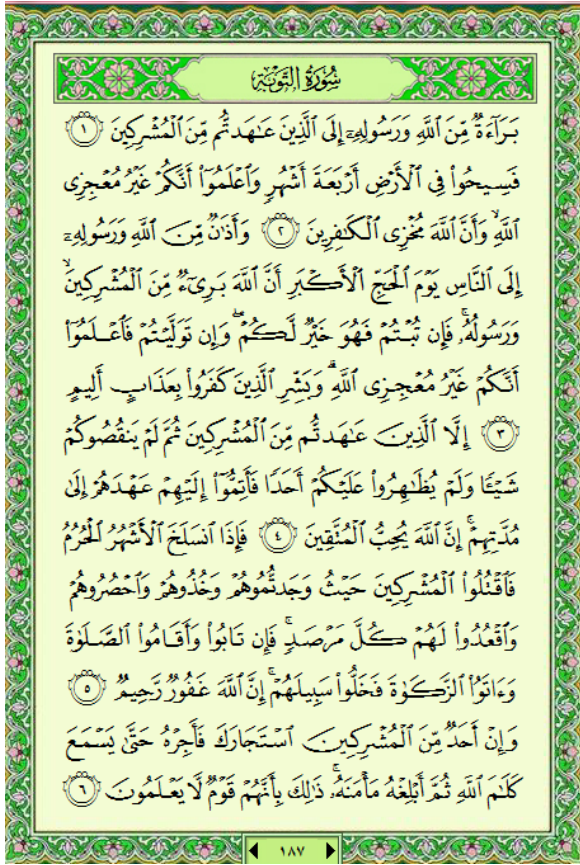 سُورَةُ التَّوْبَةِ
بَرَآءَةٌ مِّنَ ٱللَّهِ وَرَسُولِهِۦٓ إِلَى ٱلَّذِينَ عَـٰهَدتُّم مِّنَ ٱلْمُشْرِكِينَ ١
فَسِيحُوا۟ فِى ٱلْأَرْضِ أَرْبَعَةَ أَشْهُرٍ وَٱعْلَمُوٓا۟ أَنَّكُمْ غَيْرُ مُعْجِزِى
ٱللَّهِ ۙ وَأَنَّ ٱللَّهَ مُخْزِى ٱلْكَـٰفِرِينَ ٢ وَأَذَٰنٌ مِّنَ ٱللَّهِ وَرَسُولِهِۦٓ
إِلَى ٱلنَّاسِ يَوْمَ ٱلْحَجِّ ٱلْأَكْبَرِ أَنَّ ٱللَّهَ بَرِىٓءٌ مِّنَ ٱلْمُشْرِكِينَ ۙ
وَرَسُولُهُۥ ۚ فَإِن تُبْتُمْ فَهُوَ خَيْرٌ لَّكُمْ ۖ وَإِن تَوَلَّيْتُمْ فَٱعْلَمُوٓا۟
أَنَّكُمْ غَيْرُ مُعْجِزِى ٱللَّهِ ۗ وَبَشِّرِ ٱلَّذِينَ كَفَرُوا۟ بِعَذَابٍ أَلِيمٍ
٣ إِلَّا ٱلَّذِينَ عَـٰهَدتُّم مِّنَ ٱلْمُشْرِكِينَ ثُمَّ لَمْ يَنقُصُوكُمْ
شَيْـًٔا وَلَمْ يُظَـٰهِرُوا۟ عَلَيْكُمْ أَحَدًا فَأَتِمُّوٓا۟ إِلَيْهِمْ عَهْدَهُمْ إِلَىٰ
مُدَّتِهِمْ ۚ إِنَّ ٱللَّهَ يُحِبُّ ٱلْمُتَّقِينَ ٤ فَإِذَا ٱنسَلَخَ ٱلْأَشْهُرُ ٱلْحُرُمُ
فَٱقْتُلُوا۟ ٱلْمُشْرِكِينَ حَيْثُ وَجَدتُّمُوهُمْ وَخُذُوهُمْ وَٱحْصُرُوهُمْ
وَٱقْعُدُوا۟ لَهُمْ كُلَّ مَرْصَدٍ ۚ فَإِن تَابُوا۟ وَأَقَامُوا۟ ٱلصَّلَوٰةَ
وَءَاتَوُا۟ ٱلزَّكَوٰةَ فَخَلُّوا۟ سَبِيلَهُمْ ۚ إِنَّ ٱللَّهَ غَفُورٌ رَّحِيمٌ ٥
وَإِنْ أَحَدٌ مِّنَ ٱلْمُشْرِكِينَ ٱسْتَجَارَكَ فَأَجِرْهُ حَتَّىٰ يَسْمَعَ
كَلَـٰمَ ٱللَّهِ ثُمَّ أَبْلِغْهُ مَأْمَنَهُۥ ۚ ذَٰلِكَ بِأَنَّهُمْ قَوْمٌ لَّا يَعْلَمُونَ ٦
١٨٧